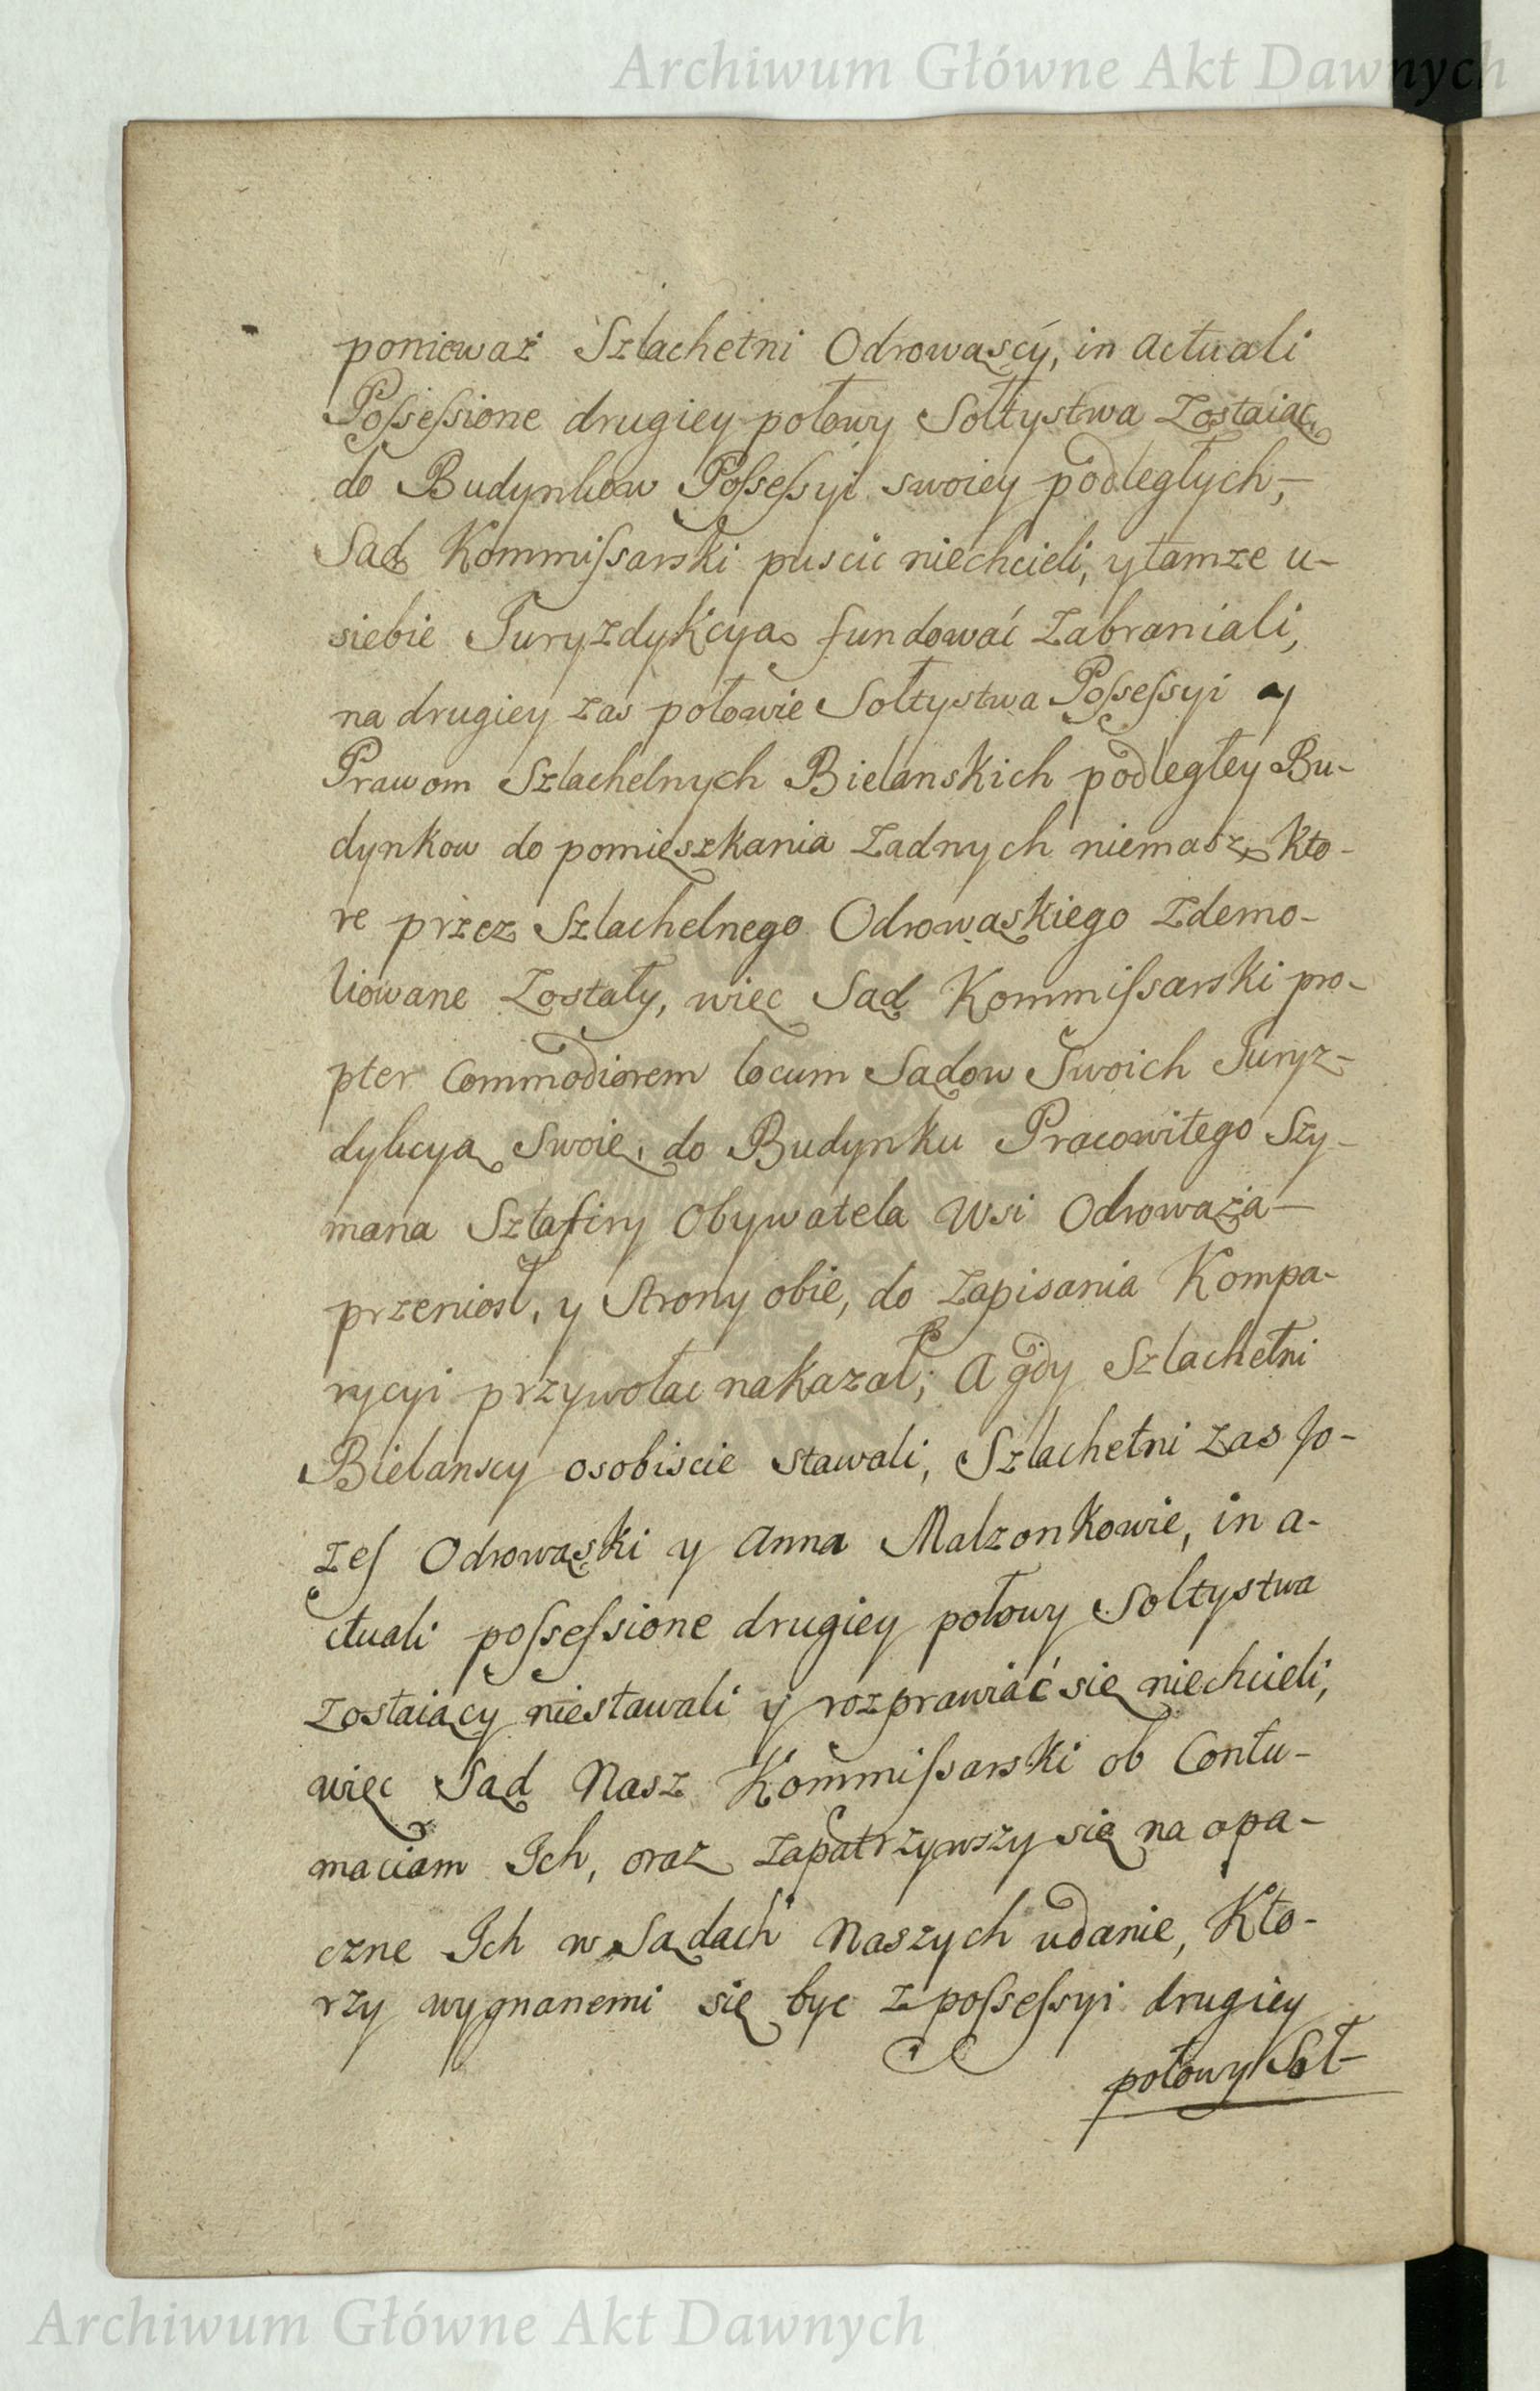 Archiwum Główne Akt Dawnych
ponieważ Szlachetni Odrowąscy, in actuali
Possessione drugiey połowy Sołtystwa Zostaiąc
do Budynkow Possessyi swoiey podległych,—
Sąd Kommissarski puscic niechcieli, y tamze u-
siebie Juryzdykcyą fundować Zabraniali,
na drugiey zas połowie Sołtystwa Possessyi y
Prawom Szlachetnych Bielanskich podległey Bu-
dynkow do pomięszkania Zadnych niemasz, kto-
re przez Szlachetnego Odrowąskiego Zdemo-
liowane Zostały, więc Sąd Kommissarski pro-
pter Commodiorem locum Sądow Swoich Juryz-
dykcyą Swoię, do Budynku Pracowitego Szy-
mana Sztafiry Obywatela Wsi Odrowąża—
przeniosł, y Strony obie, do Zapisania Kompa-
rycyi przywołac nakazał; A gdy Szlachetni
Bielanscy osobiscie stawali, Szlachetni zas Jo-
zef Odrowąski y Anna Malzonkowie, in a-
ctuali possessione drugiey połowy Soltystwa
zostaiący niestawali y rozprawiać się niechcieli,
więc Sąd Nasz Kommissarski ob Contu-
maciam Ich, oraz Zapatrzywszy się na opa-
czne Ich w Sądach Naszych udanie, Kto-
rzy wygnanemi się byc z possessyi drugiey
połowy Soł-
Archiwum Główne Akt Dawnych